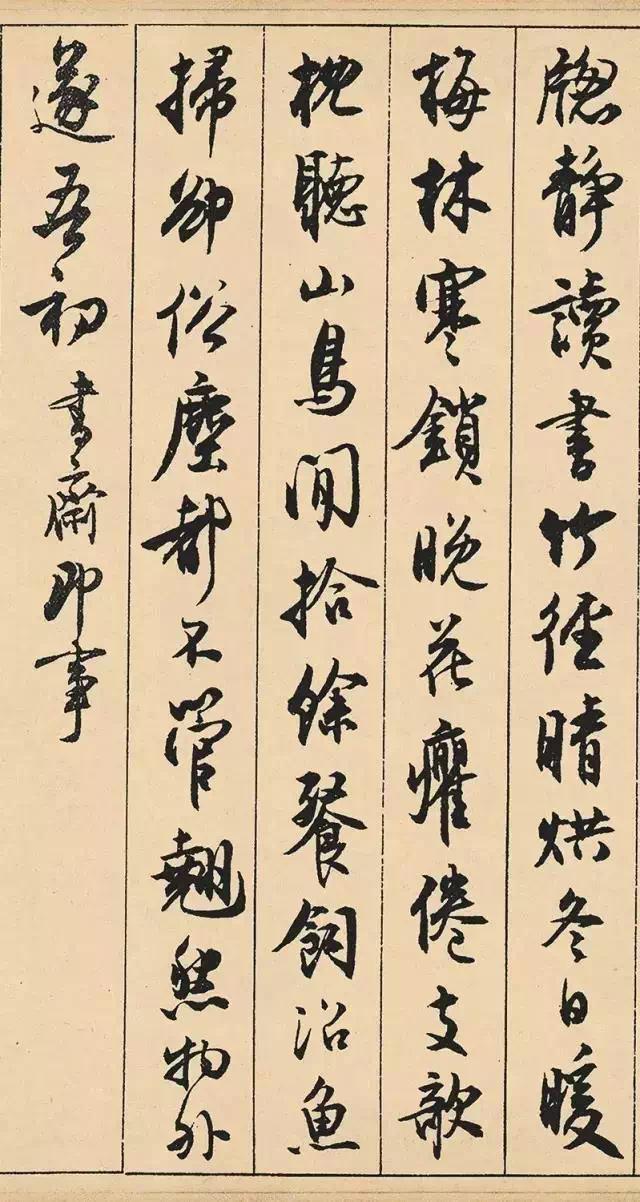 牕靜讀書竹徑晴烘冬日暖
梅林寒鎖晚花癯倦支欹
枕聽山鳥閒拾餘餐飼沼魚
掃卻俗塵都不管翹然物外
遂吾初書齋即事